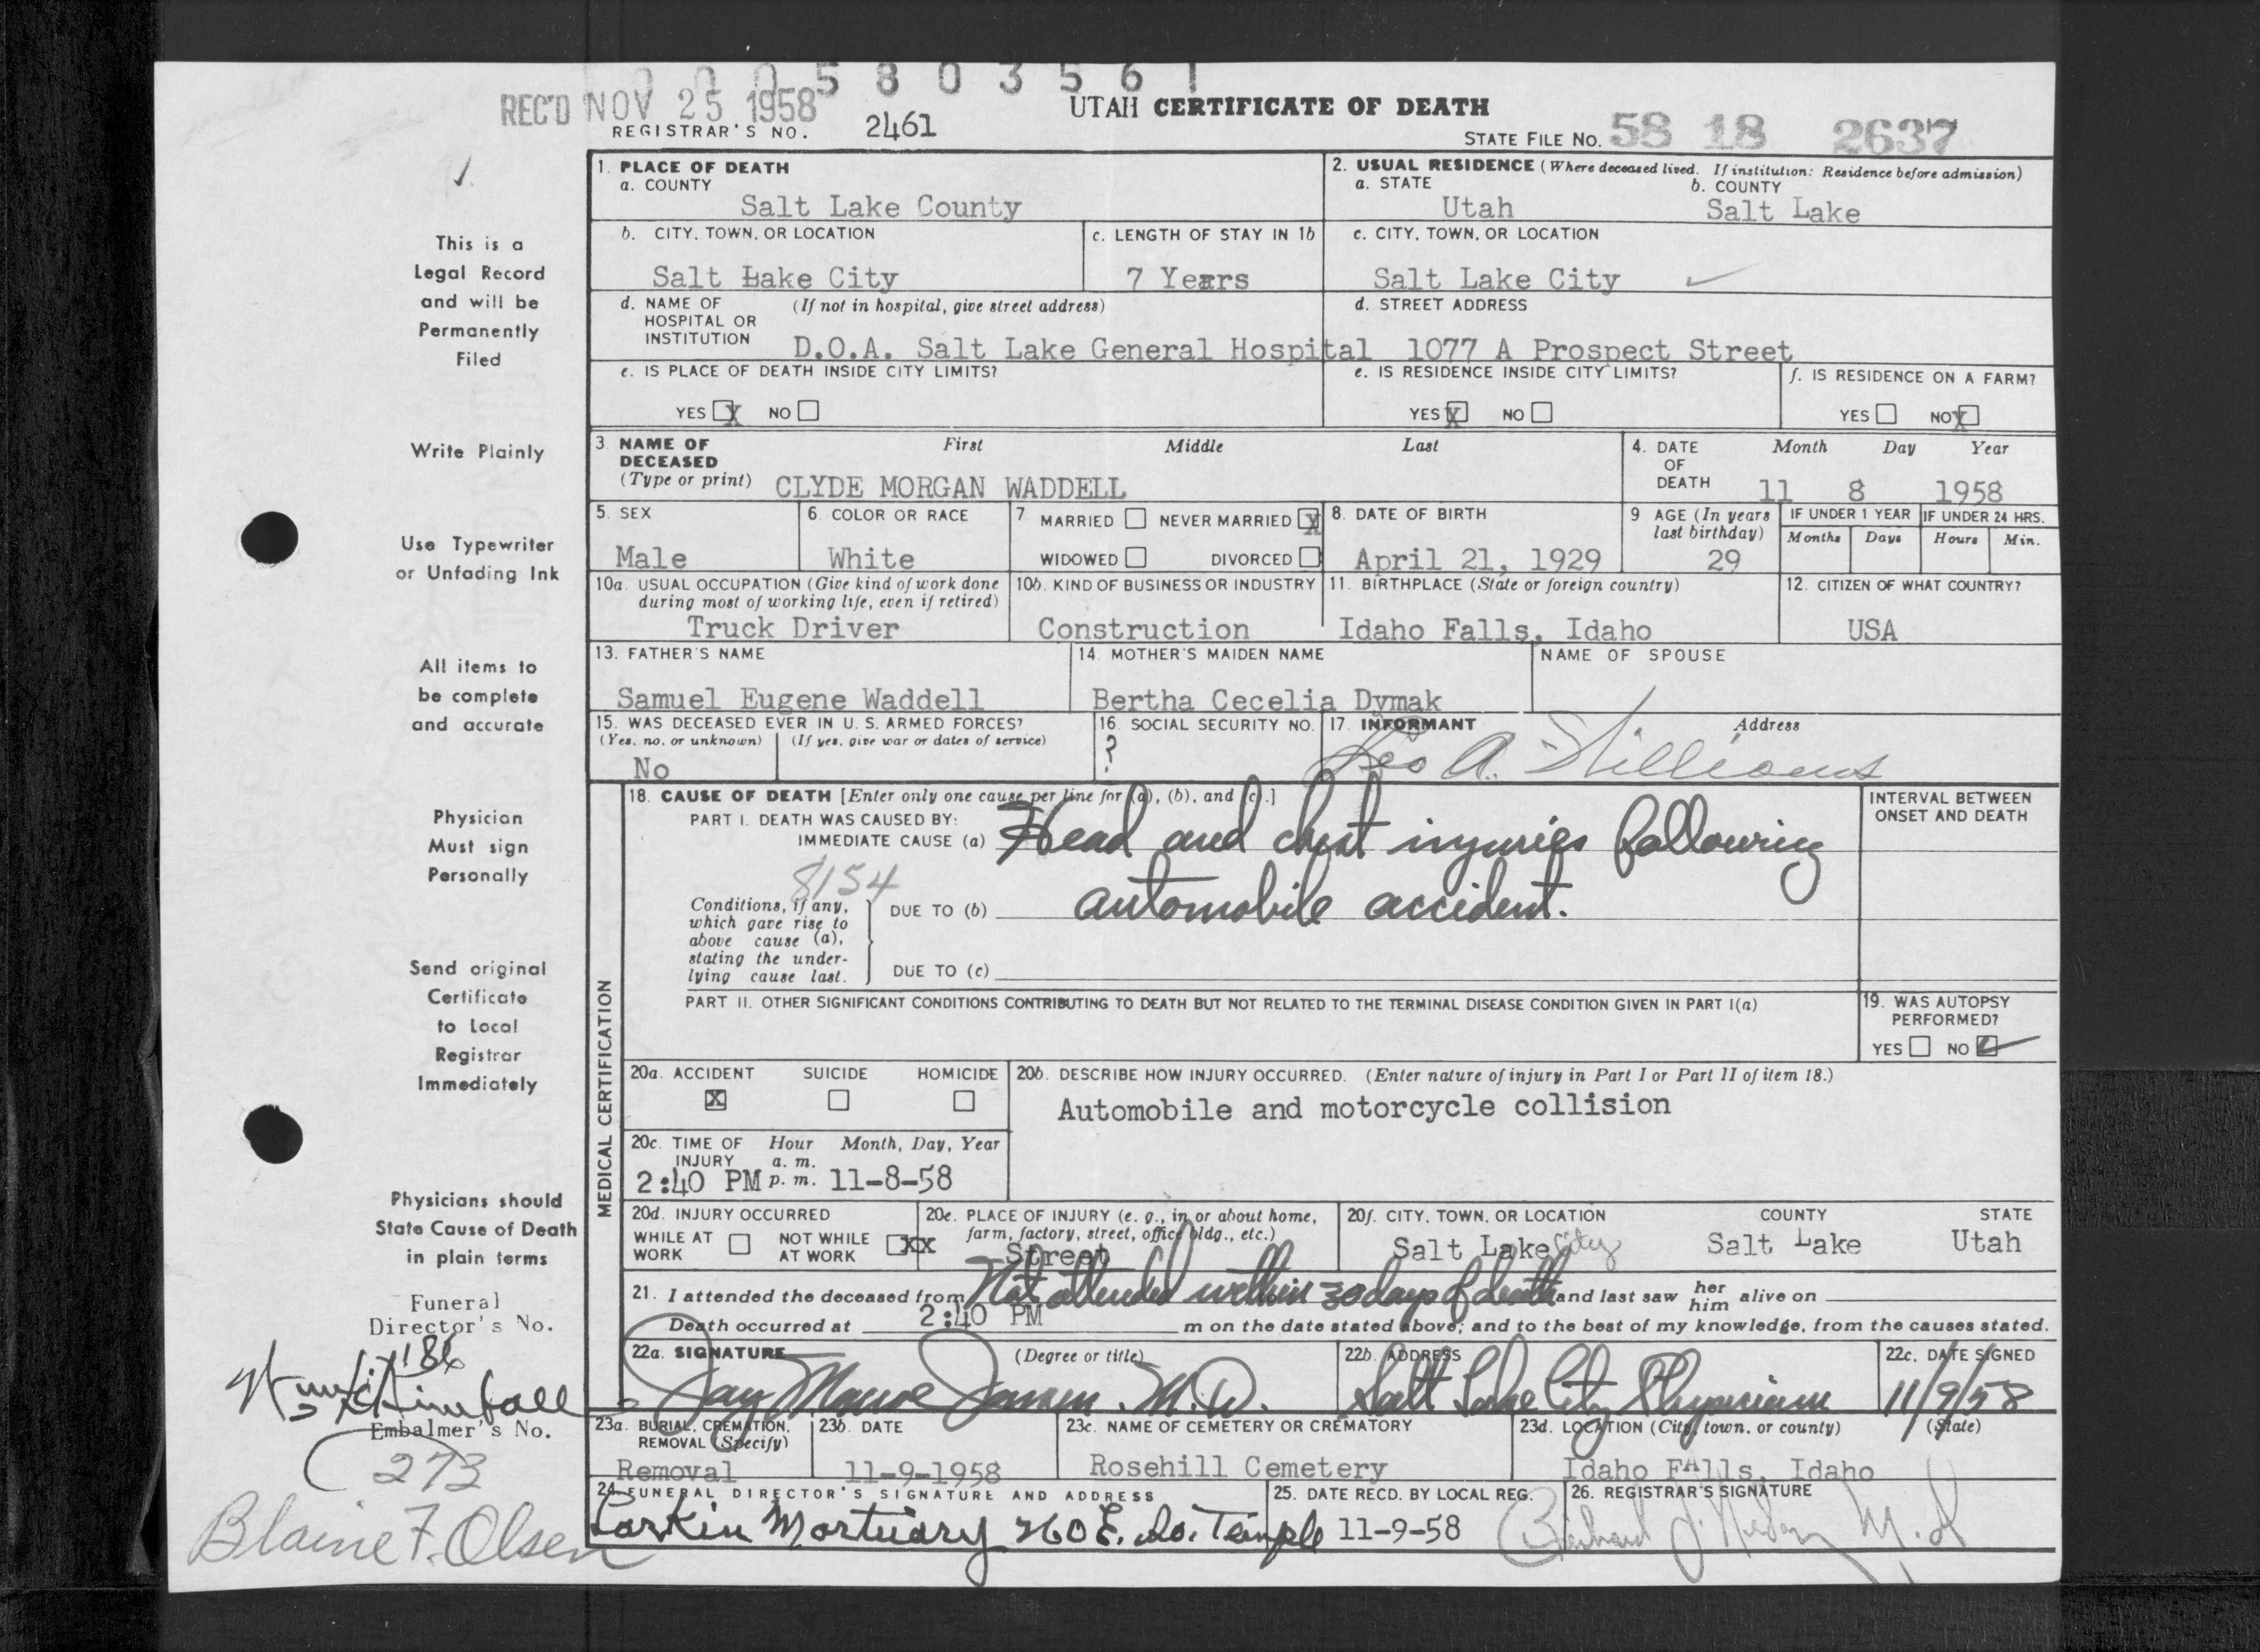 0 0 0 5 8 0 3 5 6 1
REC'D NOV 25 1958
UTAH CERTIFICATE OF DEATH
REGISTRAR'S NO. 2461
STATE FILE NO. 58 18 2637
This is a
Legal Record
and will be
Permanently
Filed
Write Plainly
Use Typewriter
or Unfading Ink
All items to
be complete
and accurate
Physician
Must sign
Personally
Send original
Certificate
to Local
Registrar
Immediately
Physicians should
State Cause of Death
in plain terms
Funeral
Director's No.
186
Kimball
Embalmer's No.
273
Blaine F. Olsen
1. PLACE OF DEATH
a. COUNTY
Salt Lake County
2. USUAL RESIDENCE (Where deceased lived. If institution: Residence before admission)
a. STATE b. COUNTY
Utah Salt Lake
b. CITY, TOWN, OR LOCATION
Salt Lake City
c. LENGTH OF STAY IN 1b
7 Years
c. CITY, TOWN, OR LOCATION
Salt Lake City
d. NAME OF (If not in hospital, give street address)
HOSPITAL OR
INSTITUTION
D.O.A. Salt Lake General Hospital
d. STREET ADDRESS
1077 A Prospect Street
e. IS PLACE OF DEATH INSIDE CITY LIMITS?
YES X NO
e. IS RESIDENCE INSIDE CITY LIMITS?
YES X NO
f. IS RESIDENCE ON A FARM?
YES NO X
3. NAME OF First Middle Last
DECEASED
(Type or print) CLYDE MORGAN WADDELL
4. DATE Month Day Year
OF
DEATH 11 8 1958
5. SEX
Male
6. COLOR OR RACE
White
7 MARRIED NEVER MARRIED X
WIDOWED DIVORCED
8. DATE OF BIRTH
April 21, 1929
9 AGE (In years
last birthday)
29
IF UNDER 1 YEAR IF UNDER 24 HRS.
Months Days Hours Min.
10a. USUAL OCCUPATION (Give kind of work done
during most of working life, even if retired)
Truck Driver
10b. KIND OF BUSINESS OR INDUSTRY
Construction
11. BIRTHPLACE (State or foreign country)
Idaho Falls, Idaho
12. CITIZEN OF WHAT COUNTRY?
USA
13. FATHER'S NAME
Samuel Eugene Waddell
14. MOTHER'S MAIDEN NAME
Bertha Cecelia Dymak
NAME OF SPOUSE
15. WAS DECEASED EVER IN U. S. ARMED FORCES?
(Yes, no, or unknown) (If yes, give war or dates of service)
No
16. SOCIAL SECURITY NO.
?
17. INFORMANT Address
A.
18. CAUSE OF DEATH [Enter only one cause per line for (a), (b), and (c).]
PART I. DEATH WAS CAUSED BY:
IMMEDIATE CAUSE (a) Head and chest injuries following
8154
Conditions, if any,
which gave rise to
above cause (a),
stating the under-
lying cause last.
DUE TO (b) automobile accident.
DUE TO (c)
INTERVAL BETWEEN
ONSET AND DEATH
PART II. OTHER SIGNIFICANT CONDITIONS CONTRIBUTING TO DEATH BUT NOT RELATED TO THE TERMINAL DISEASE CONDITION GIVEN IN PART I(a)
19. WAS AUTOPSY
PERFORMED?
YES NO
MEDICAL CERTIFICATION
20a. ACCIDENT SUICIDE HOMICIDE
X
20b. DESCRIBE HOW INJURY OCCURRED. (Enter nature of injury in Part I or Part II of item 18.)
Automobile and motorcycle collision
20c. TIME OF Hour Month, Day, Year
INJURY a. m.
2:40 PM p. m. 11-8-58
20d. INJURY OCCURRED
WHILE AT NOT WHILE XX
WORK AT WORK
20e. PLACE OF INJURY (e. g., in or about home,
farm, factory, street, office bldg., etc.)
Street
20f. CITY, TOWN, OR LOCATION COUNTY STATE
Salt Lake City Salt Lake Utah
21. I attended the deceased from Not attended within 30 days of death and last saw her him alive on
Death occurred at 2:40 PM m on the date stated above; and to the best of my knowledge, from the causes stated.
22a. SIGNATURE (Degree or title)
Jay M.D.
22b. ADDRESS
Salt Lake City Physician
22c. DATE SIGNED
11/9/58
23a. BURIAL, CREMATION,
REMOVAL (Specify)
Removal
23b. DATE
11-9-1958
23c. NAME OF CEMETERY OR CREMATORY
Rosehill Cemetery
23d. LOCATION (City, town, or county) (State)
Idaho Falls, Idaho
24. FUNERAL DIRECTOR'S SIGNATURE AND ADDRESS
Larkin Mortuary 260 E. So. Temple
25. DATE RECD. BY LOCAL REG.
11-9-58
26. REGISTRAR'S SIGNATURE